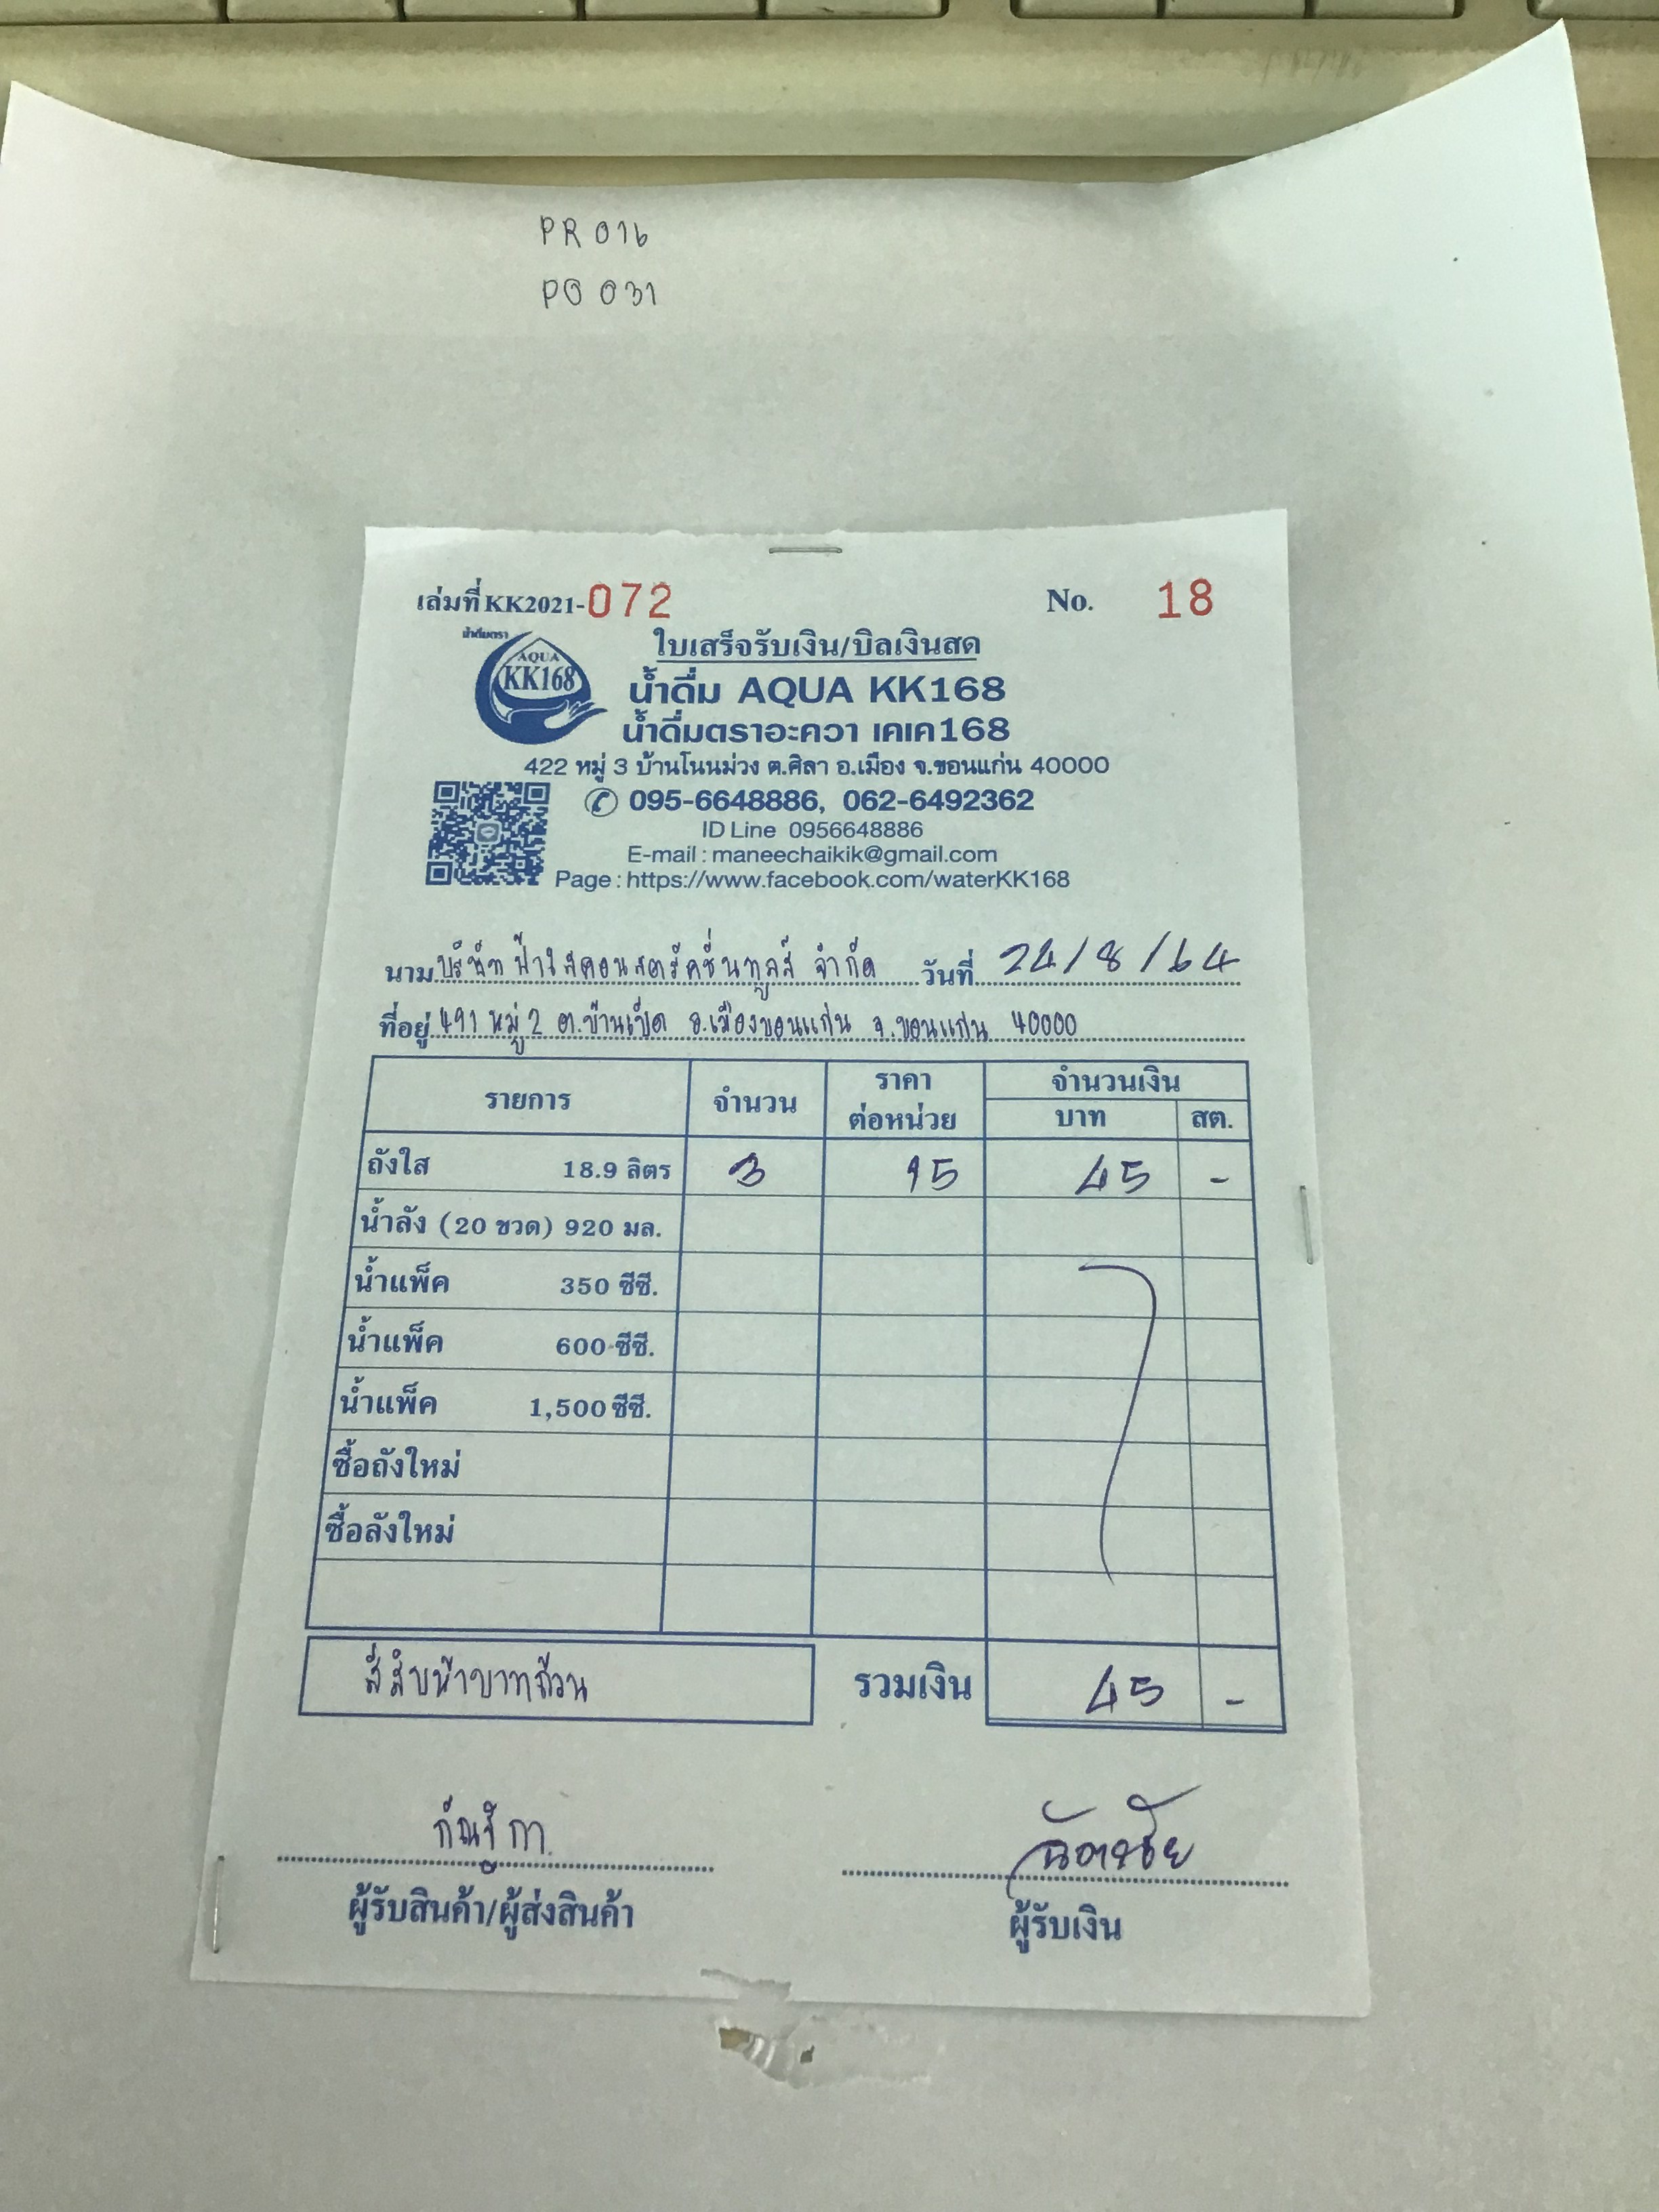 PR 016
PO 031
เล่มที่ KK2021-072
No. 18
ใบเสร็จรับเงิน/บิลเงินสด
น้ำดื่ม AQUA KK168
น้ำดื่มตราอะควา เคเค168
AQUA
KK168
422 หมู่ 3 บ้านโนนม่วง ต.ศิลา อ.เมือง จ.ขอนแก่น 40000
095-6648886, 062-6492362
ID Line 0956648886
E-mail : maneechaikik@gmail.com
Page : https://www.facebook.com/waterKK168
นาม บริษัท ป้าไสคอนสตรัคชั่นทูลส์ จำกัด วันที่ 24/8/64
ที่อยู่ 491 หมู่ 2 ต.บ้านเป็ด อ.เมืองขอนแก่น จ.ขอนแก่น 40000
รายการ จำนวน ราคาต่อหน่วย จำนวนเงิน
บาท สต.
ถังใส 18.9 ลิตร 3 15 45 -
น้ำลัง (20 ขวด) 920 มล.
น้ำแพ็ค 350 ซีซี.
น้ำแพ็ค 600 ซีซี.
น้ำแพ็ค 1,500 ซีซี.
ซื้อถังใหม่
ซื้อลังใหม่
สี่สิบห้าบาทถ้วน รวมเงิน 45 -
ผู้รับสินค้า/ผู้ส่งสินค้า ผู้รับเงิน